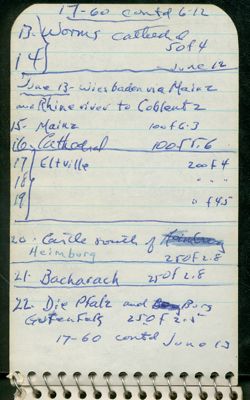 17-60 contd 6-12
13- Worms cathedral
14 50f4
June 12
June 13- Wiesbaden via Mainz
and Rhine river to Coblentz
15- Mainz 100f6.3
16- Cathedral 100f5.6
17 Eltville 200f4
18 " "
19 " f45
20- Castle south of
Heimburg 250f2.8
21- Bacharach 250f2.8
22- Die Pfalz and Burg
Gutenfels 250f2.8
17-60 contd June 13